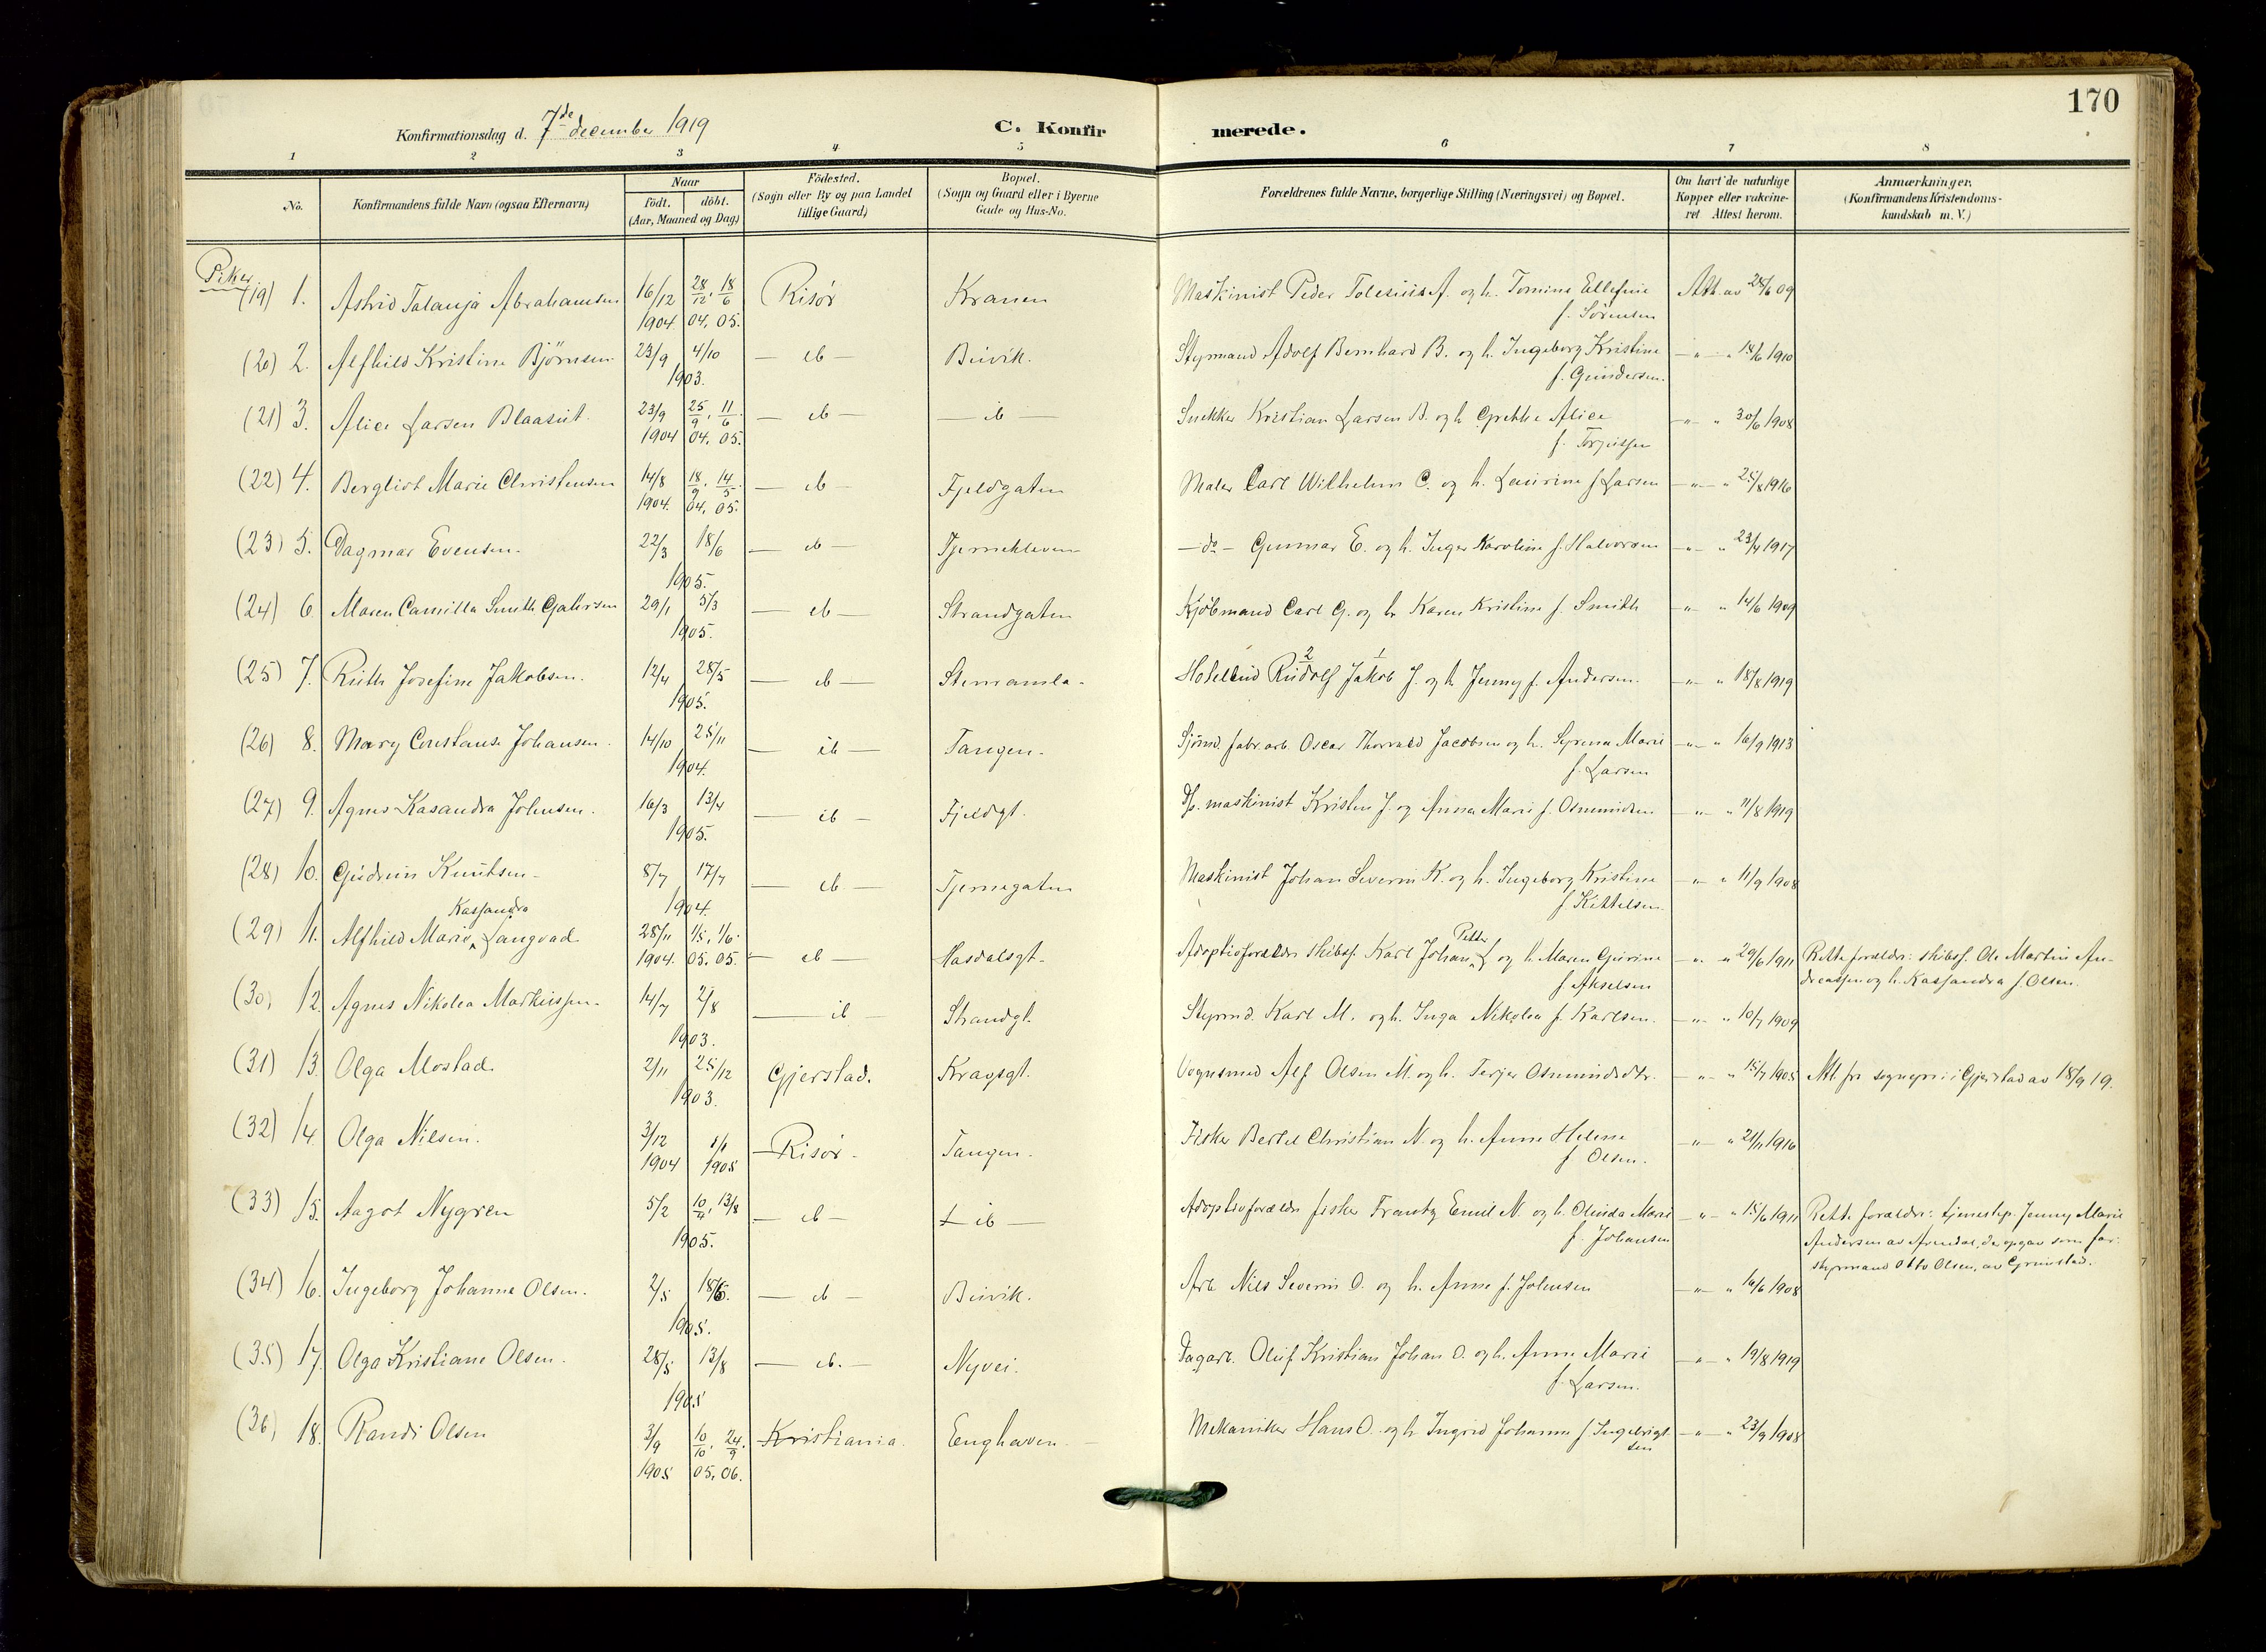 170
Konfirmationsdag d. 7de december 1919
C. Konfirmerede.
1 2 3 4 5 6 7 8
No.
Konfirmandens fulde Navn (ogsaa Efternavn)
Naar
födt. döbt.
(Aar, Maaned og Dag)
Födested.
(Sogn eller By og paa Landet
tillige Gaard)
Bopæl.
(Sogn og Gaard eller i Byerne
Gade og Hus-No.
Forældrenes fulde Navne, borgerlige Stilling (Næringsvei) og Bopæl.
Om havt de naturlige
Kopper eller vakcine-
ret Attest herom.
Anmærkninger.
(Konfirmandens Kristendoms-
kundskab m. V.)
Piker
(19) 1. Astrid Talanja Abrahamsen 16/12 1904. 28/12, 18/6 04, 05. Risør Kranen Maskinist Peder Tolesius A. og h. Tomine Ellefine Att. av 28/6 09
f. Sørensen
(20) 2. Alfhild Kristine Björnsen 23/9 4/10 — ib — Buvik. Styrmand Adolf Bernhard B. og h. Ingeborg Kristine — " — " 18/6 1910
1903. f. Gundersen.
(21) 3. Alice Larsen Blaasut. 23/9 1904 25/9, 11/6. 04, 05. — ib — — ib — Snekker Kristian Larsen B. og h. Grethe Alice — " — " 30/6 1908
f. Torjussen
(22) 4. Bergliot Marie Christensen 14/8 1904. 18/9, 14/5. 04, 05. — ib — Fjeldgaten Maler Carl Wilhelm C. og h. Laurine f. Larsen — " — " 25/8 1916
(23) 5. Dagmar Evensen. 22/3 18/6 — ib — Tjernekleven — do — Gunnar E. og h. Inger Karoline f. Halvorsen — " — " 23/4 1917
1905.
(24) 6. Maren Camilla Smith Gahrsen 29/1 5/3 — ib — Strandgaten Kjöbmand Carl G. og h. Karen Kristine f. Smith — " — " 14/6 1909
1905.
(25) 7. Ruth Josefine Jakobsen. 12/4 28/5 — ib — Stenramla. Hotelbud Rudolf Jakob J. og h. Jenny f. Andersen. — " — " 18/8 1919
2 1
1905.
(26) 8. Mary Constanse Johansen. 14/10 25/11 — ib — Tangen. Sjömd. fabr. arb. Oscar Thorvald Jacobsen og h. Syrena Marie — " — " 16/9 1913
1904. f. Larsen
(27) 9. Agnes Kasandra Johnsen. 16/3 13/4 — ib — Fjeldgt. D/s. maskinist Kristen J. og Anna Marie f. Osmundsen — " — " 11/8 1919
1905.
(28) 10. Gudrun Knutsen. 8/7 17/7 — ib — Tjernegaten Maskinist Johan Severin K. og h. Ingeborg Kristine — " — " 11/9 1908
1904. f. Kittelsen.
Kassandra
(29) 11. Alfhild Marie Langvad 28/11 1904. 1/5, 1/6. 05, 05. — ib — Hasdalsgt. Adoptivforældre skibsf. Karl Johan Petter L. og h. Maren Gurine — " — " 29/6 1911 Rette forældre: skibsf. Ole Martin An-
f. Akselsen dreassen og h. Kassandra f. Olsen.
(30) 12. Agnes Nikolea Markussen. 14/7 2/8 — ib — Strandgt. Styrmd. Karl M. og h. Inga Nikolea f. Karlsen. — " — " 10/7 1909
1903.
(31) 13. Olga Mostad. 2/11 25/12 Gjerstad. Kragsgt. Vognmd Alf Olsen M. og h. Terjer Osmundsdtr. — " — " 15/7 1905 Att. fra sognepr. i Gjerstad av 18/9 19.
1903.
(32) 14. Olga Nilsen. 3/12 1904 1/1 1905 — Risør. Tangen. Fisker Bertel Christian N. og h. Anne Helene — " — " 21/11 1916
f. Olsen.
(33) 15. Aagot Nygren 5/2 10/4, 13/8 — ib — — ib — Adoptivforældre fisker Frantz Emil N. og h. Olinda Marie — " — " 15/6 1911 Rette forældre: tjenestep. Jenny Marie
1905. f. Johansen Andersen av Arendal, der opgav som far:
styrmand Otto Olsen, av Grimstad.
(34) 16. Ingeborg Johanne Olsen. 2/5 18/6. — ib — Buvik. Arb. Nils Severin O. og h. Anne f. Johnsen — " — " 16/6 1908
1905.
(35) 17. Olga Kristiane Olsen. 28/5 13/8 — ib. — Nyvei. Dagarb. Oluf Kristian Johan O. og h. Anne Marie — " — " 19/8 1919
1905 f. Larsen.
(36) 18. Randi Olsen 3/9 1905 10/10, 24/9. 05, 06. Kristiania. Enghaven. Mekaniker Hans O. og h. Ingrid Johanne f. Ingebrigt- — " — " 23/9 1908
sen